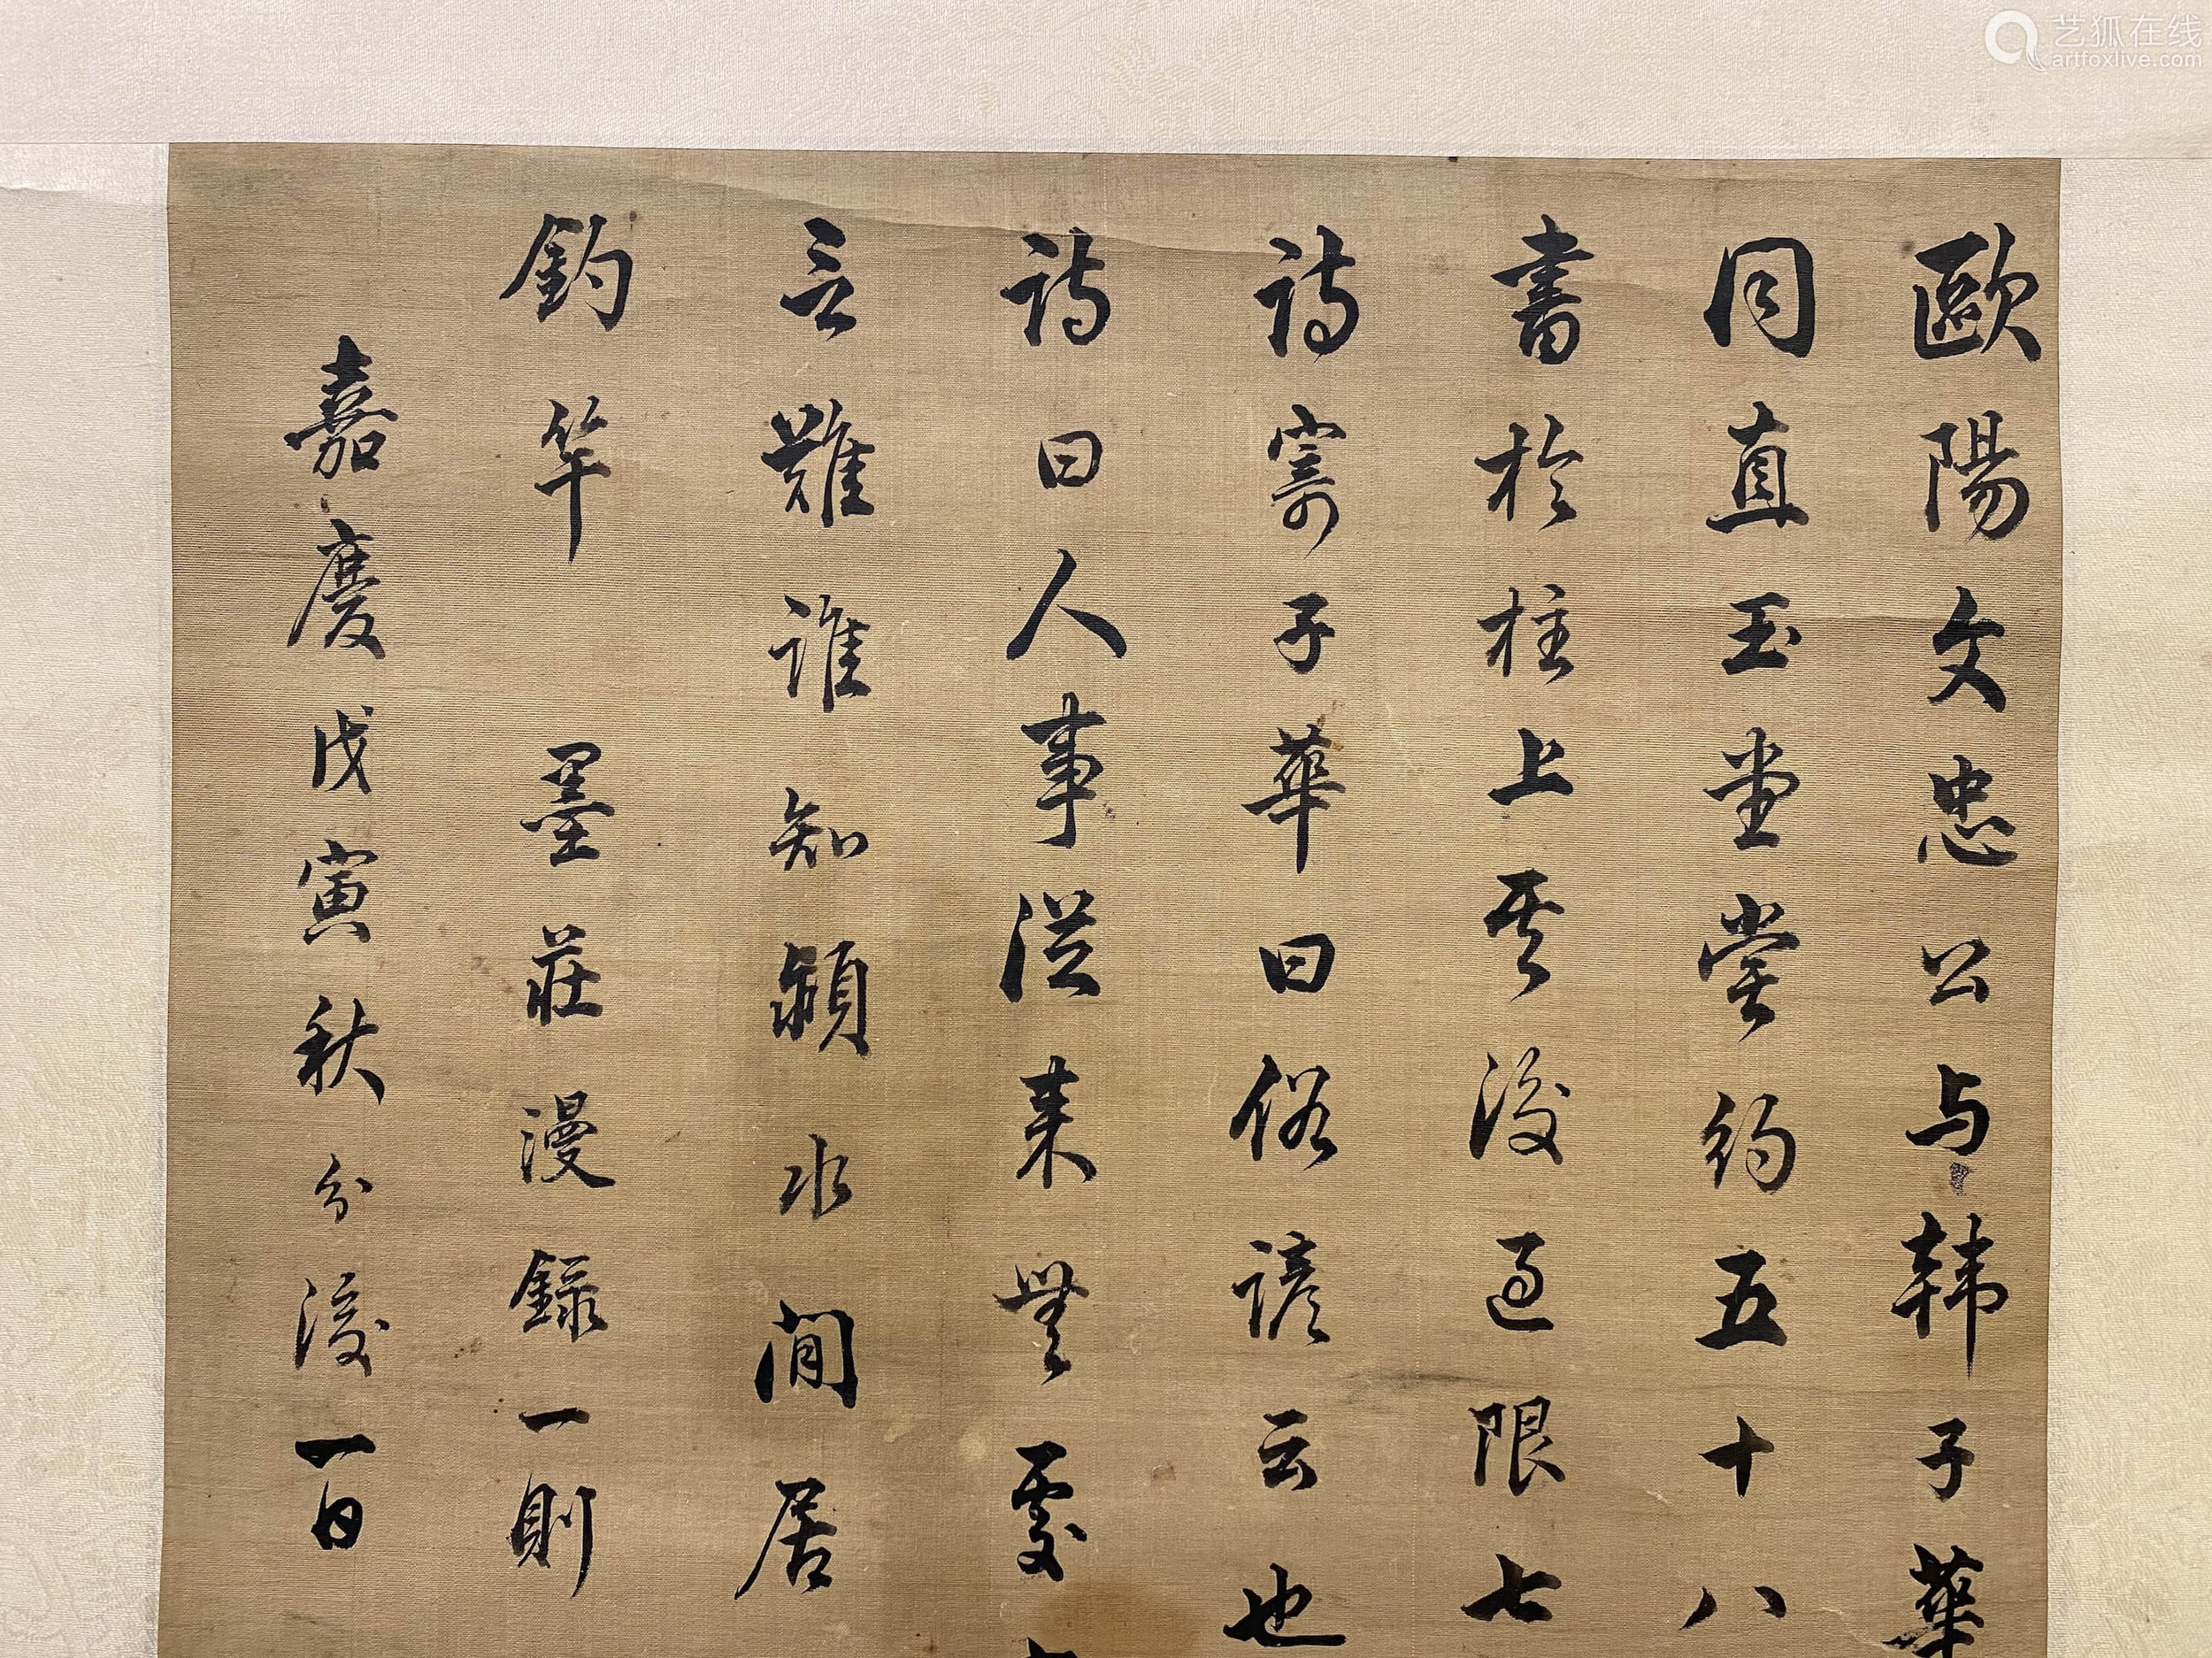 歐陽文忠公与韩子華
同直玉堂嘗約五十八
書於柱上其後过限七
詩寄子華曰俗諺云也
詩曰人事從来無處
言難誰知潁水閒居
釣竿 墨莊漫錄一則
嘉慶戊寅秋分後一日
艺狐在线
artfoxlive.com